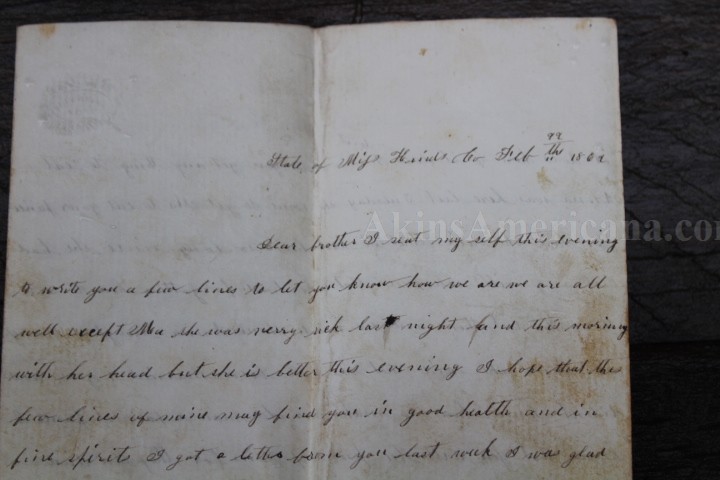 State of Miss Hinds Co Feb 22th 1862
AkinsAmericana.co
Dear brother I seat my self this evening
to write you a few lines to let you know how we are we are all
well except Ma she was verry sick last night and this morning
with her head but she is better this evening I hope that this
few lines of mine may find you in good health and in
fine spirits I got a letter from you last week I was glad